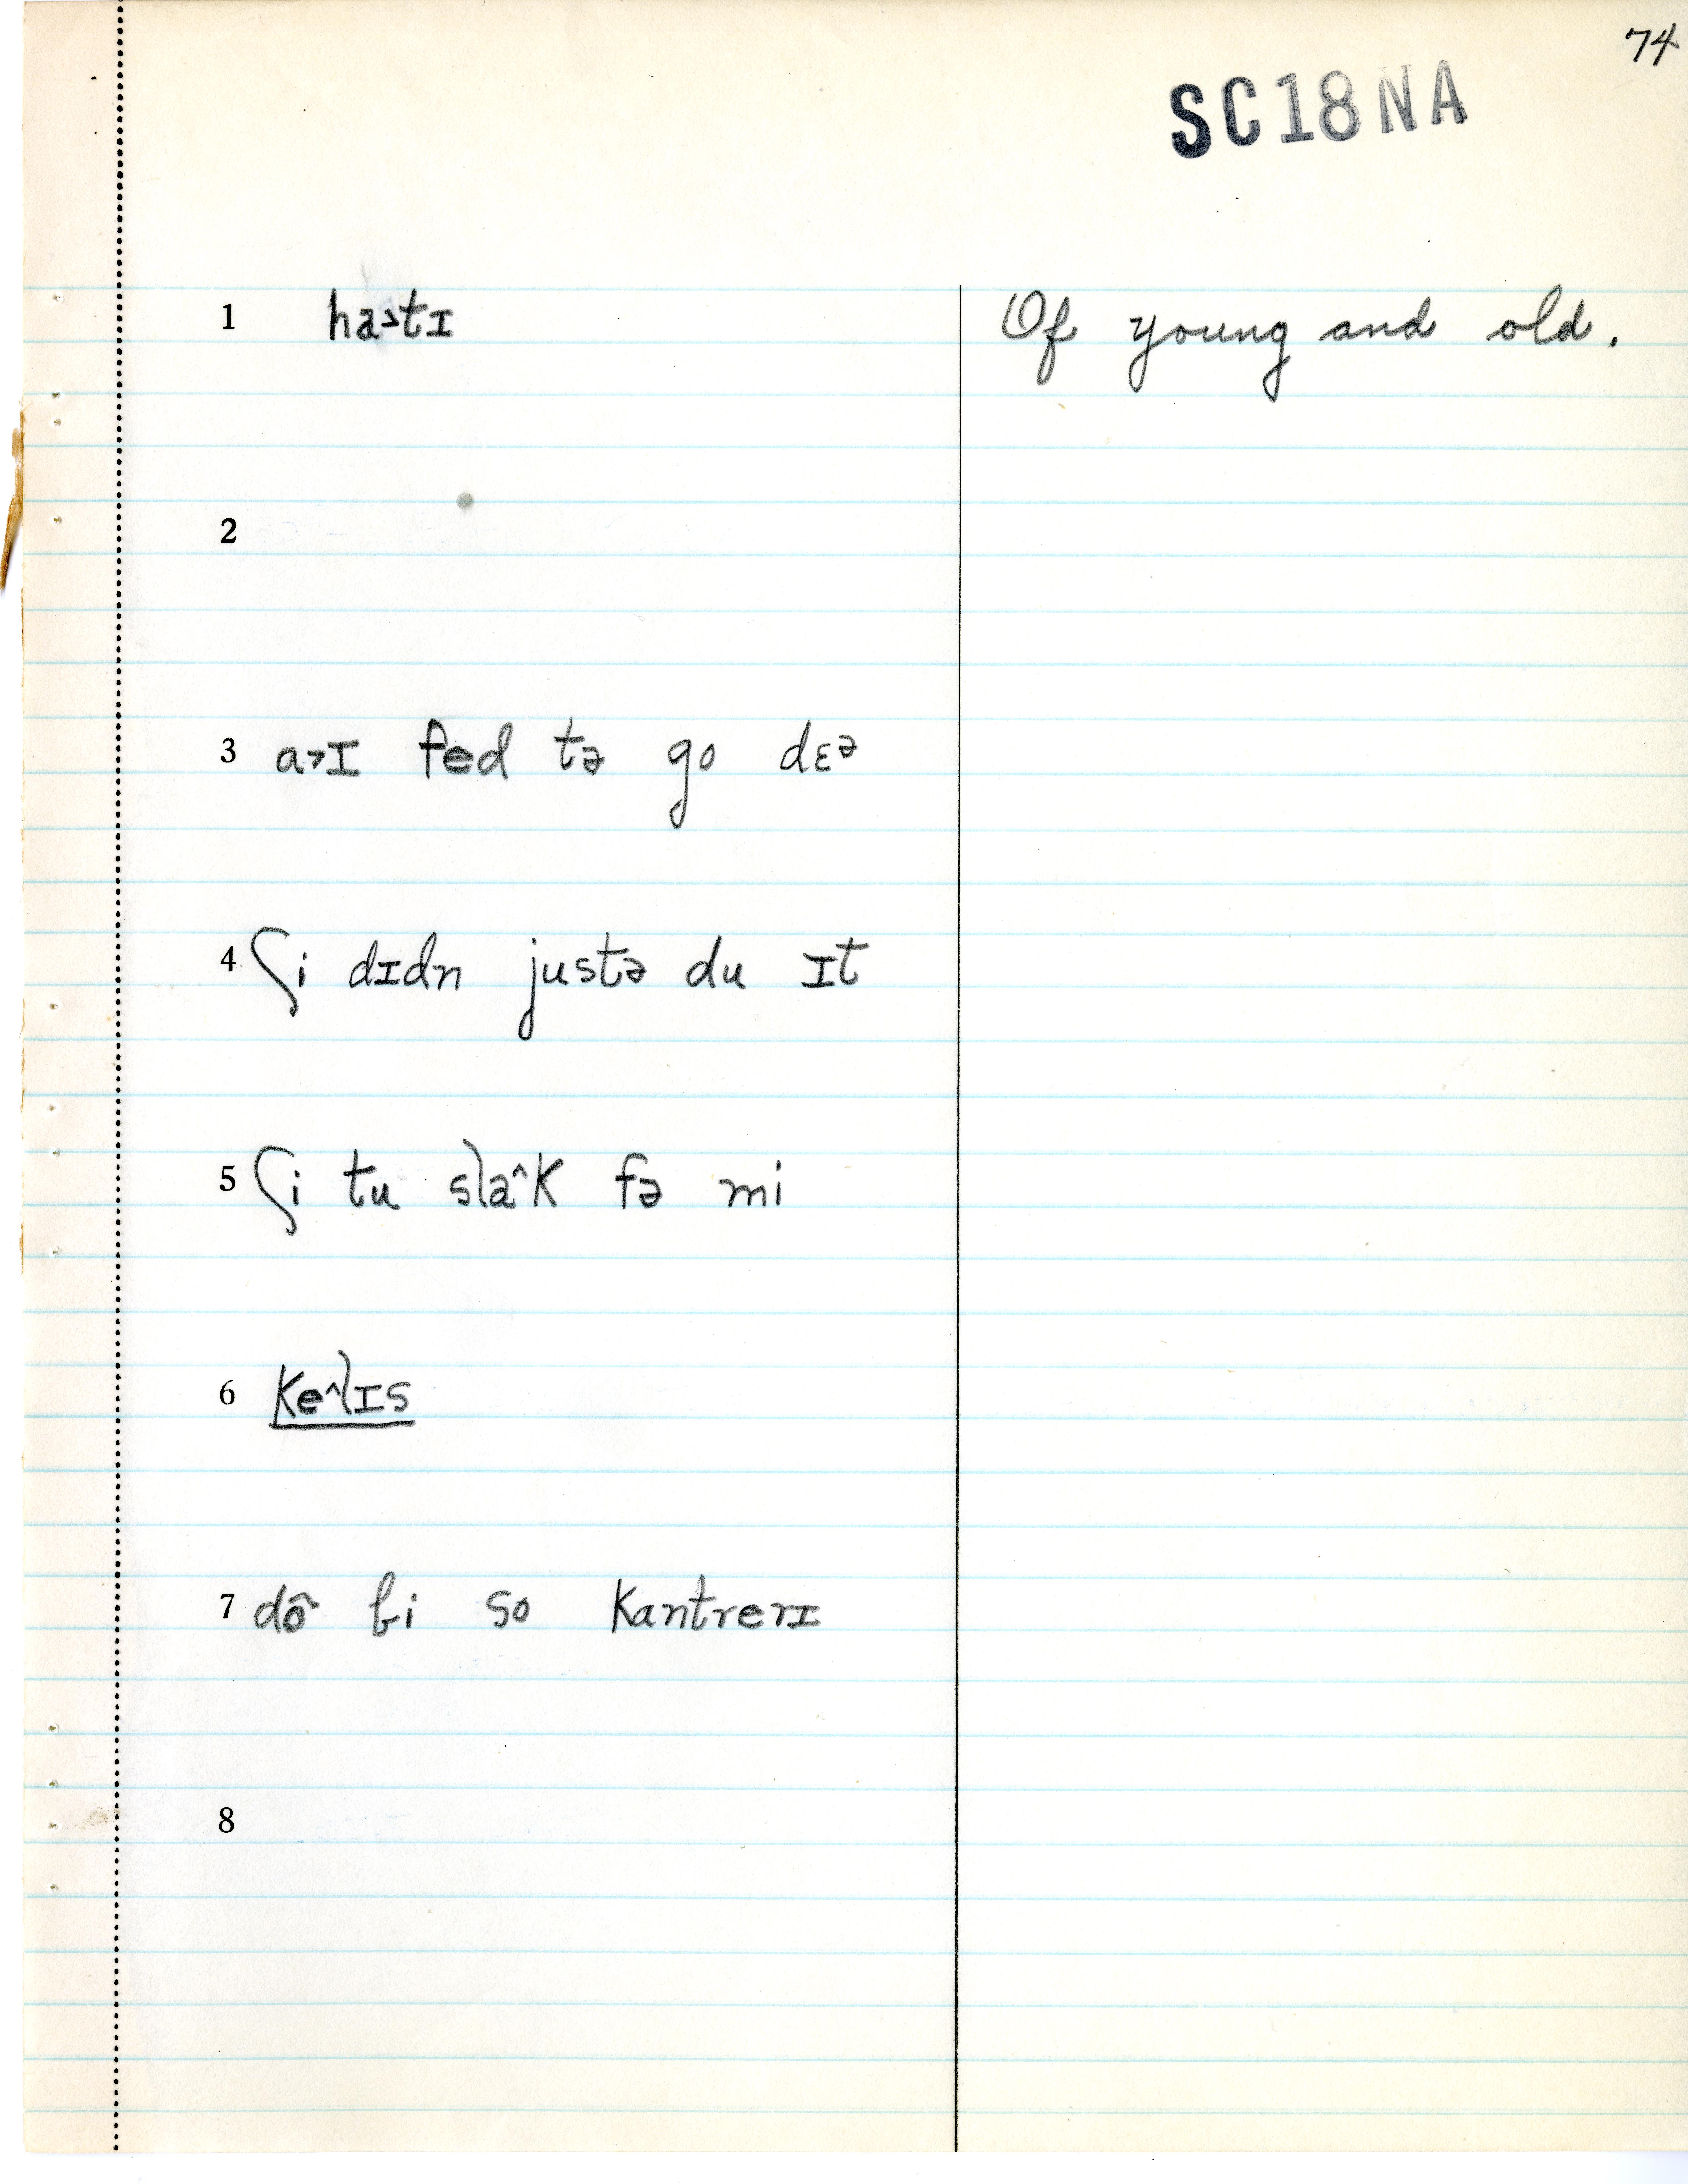 74
SC18NA
1 ha˃tɪ Of young and old.
2
3 a˃ɪ fed tə go dɛᵊ
4 ʃi dɪdn justə du ɪt
5 ʃi tu sla^k fə mi
6 ke^lɪs
7 dõ bi so kantrerɪ
8